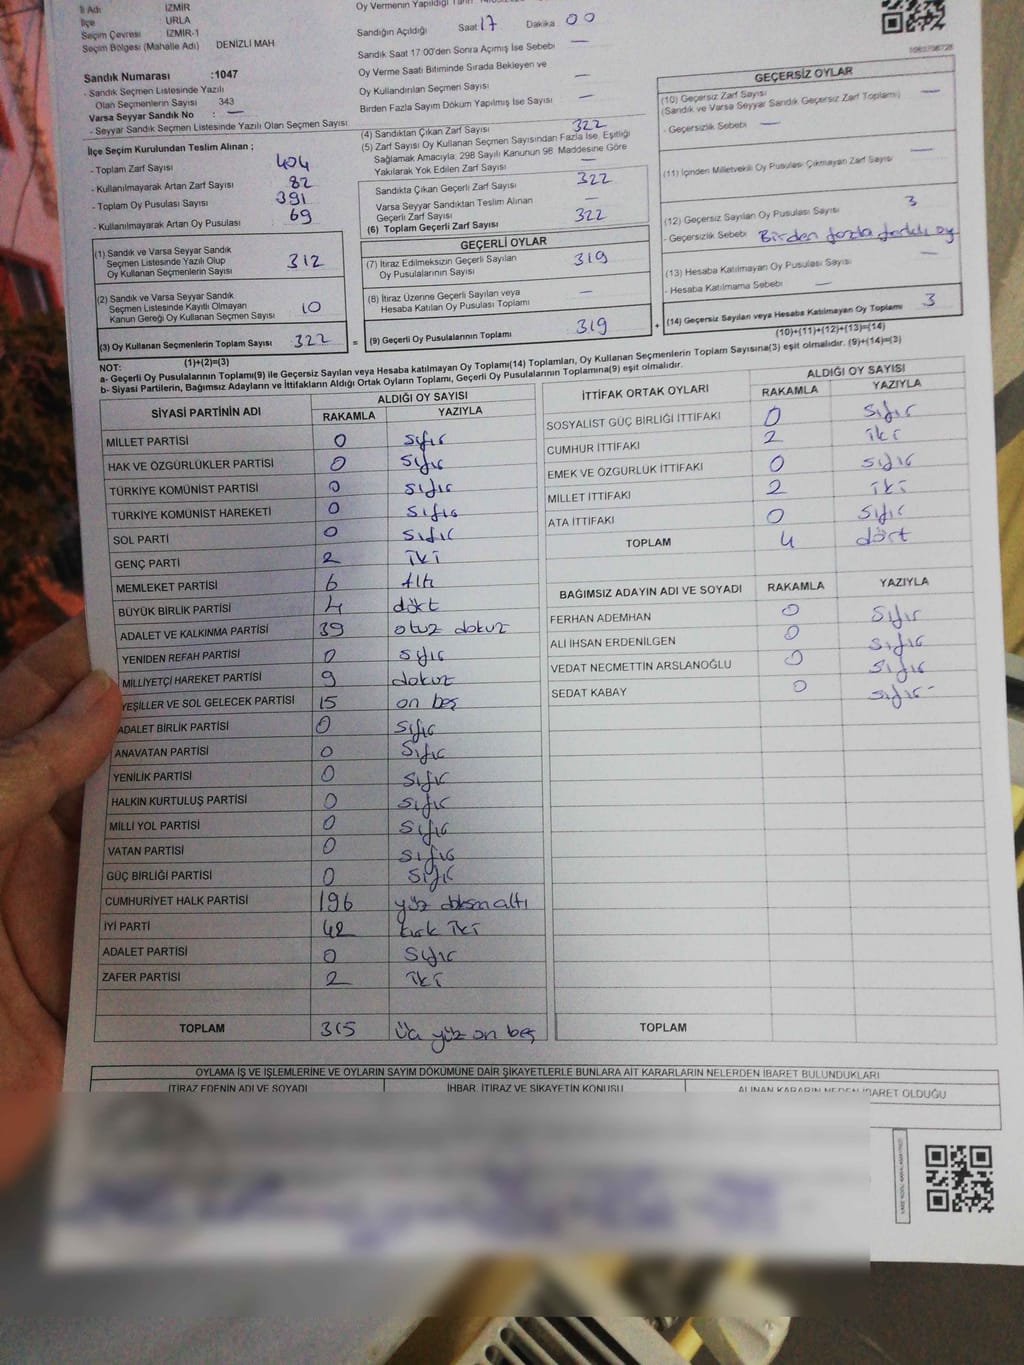 İli Adı İZMİR
İlçe URLA
Seçim Çevresi İZMİR-1
Seçim Bölgesi (Mahalle Adı) DENİZLİ MAH
Sandık Numarası :1047
- Sandık Seçmen Listesinde Yazılı
Olan Seçmenlerin Sayısı 343
Varsa Seyyar Sandık No : —
- Seyyar Sandık Seçmen Listesinde Yazılı Olan Seçmen Sayısı
İlçe Seçim Kurulundan Teslim Alınan ;
- Toplam Zarf Sayısı 404
- Kullanılmayarak Artan Zarf Sayısı 82
- Toplam Oy Pusulası Sayısı 391
- Kullanılmayarak Artan Oy Pusulası 69
(1) Sandık ve Varsa Seyyar Sandık
Seçmen Listesinde Yazılı Olup
Oy Kullanan Seçmenlerin Sayısı 312
(2) Sandık ve Varsa Seyyar Sandık
Seçmen Listesinde Kayıtlı Olmayan
Kanun Gereği Oy Kullanan Seçmen Sayısı 10
(3) Oy Kullanan Seçmenlerin Toplam Sayısı 322
(1)+(2)=(3)
Oy Vermenin Yapıldığı
Sandığın Açıldığı Saat 17 Dakika 00
Sandık Saat 17:00'den Sonra Açmış İse Sebebi —
Oy Verme Saati Bitiminde Sırada Bekleyen ve
Oy Kullandırılan Seçmen Sayısı —
Birden Fazla Sayım Döküm Yapılmış İse Sayısı —
(4) Sandıktan Çıkan Zarf Sayısı 322
(5) Zarf Sayısı Oy Kullanan Seçmen Sayısından Fazla İse, Eşitliği
Sağlamak Amacıyla; 298 Sayılı Kanunun 98. Maddesine Göre
Yakılarak Yok Edilen Zarf Sayısı —
Sandıkta Çıkan Geçerli Zarf Sayısı 322
Varsa Seyyar Sandıktan Teslim Alınan
Geçerli Zarf Sayısı —
(6) Toplam Geçerli Zarf Sayısı 322
GEÇERLİ OYLAR
(7) İtiraz Edilmeksizin Geçerli Sayılan
Oy Pusulalarının Sayısı 319
(8) İtiraz Üzerine Geçerli Sayılan veya
Hesaba Katılan Oy Pusulası Toplamı —
= (9) Geçerli Oy Pusulalarının Toplamı 319
GEÇERSİZ OYLAR
(10) Geçersiz Zarf Sayısı —
(Sandık ve Varsa Seyyar Sandık Geçersiz Zarf Toplamı)
- Geçersizlik Sebebi —
(11) İçinden Milletvekili Oy Pusulası Çıkmayan Zarf Sayısı —
(12) Geçersiz Sayılan Oy Pusulası Sayısı 3
- Geçersizlik Sebebi Birden fazla farklı oy
(13) Hesaba Katılmayan Oy Pusulası Sayısı —
- Hesaba Katılmama Sebebi —
+ (14) Geçersiz Sayılan veya Hesaba Katılmayan Oy Toplamı 3
(10)+(11)+(12)+(13)=(14)
NOT:
a- Geçerli Oy Pusulalarının Toplamı(9) ile Geçersiz Sayılan veya Hesaba katılmayan Oy Toplamı(14) Toplamları, Oy Kullanan Seçmenlerin Toplam Sayısına(3) eşit olmalıdır. (9)+(14)=(3)
b- Siyasi Partilerin, Bağımsız Adayların ve İttifakların Aldığı Ortak Oyların Toplamı, Geçerli Oy Pusulalarının Toplamına(9) eşit olmalıdır.
SİYASİ PARTİNİN ADI ALDIĞI OY SAYISI
RAKAMLA YAZIYLA
MİLLET PARTİSİ 0 sıfır
HAK VE ÖZGÜRLÜKLER PARTİSİ 0 sıfır
TÜRKİYE KOMÜNİST PARTİSİ 0 sıfır
TÜRKİYE KOMÜNİST HAREKETİ 0 sıfır
SOL PARTİ 0 sıfır
GENÇ PARTİ 2 iki
MEMLEKET PARTİSİ 6 altı
BÜYÜK BİRLİK PARTİSİ 4 dört
ADALET VE KALKINMA PARTİSİ 39 otuz dokuz
YENİDEN REFAH PARTİSİ 0 sıfır
MİLLİYETÇİ HAREKET PARTİSİ 9 dokuz
YEŞİLLER VE SOL GELECEK PARTİSİ 15 on beş
ADALET BİRLİK PARTİSİ 0 sıfır
ANAVATAN PARTİSİ 0 sıfır
YENİLİK PARTİSİ 0 sıfır
HALKIN KURTULUŞ PARTİSİ 0 sıfır
MİLLİ YOL PARTİSİ 0 sıfır
VATAN PARTİSİ 0 sıfır
GÜÇ BİRLİĞİ PARTİSİ 0 sıfır
CUMHURİYET HALK PARTİSİ 196 yüz doksan altı
İYİ PARTİ 42 kırk iki
ADALET PARTİSİ 0 sıfır
ZAFER PARTİSİ 2 iki
TOPLAM 315 üç yüz on beş
İTTİFAK ORTAK OYLARI ALDIĞI OY SAYISI
RAKAMLA YAZIYLA
SOSYALİST GÜÇ BİRLİĞİ İTTİFAKI 0 sıfır
CUMHUR İTTİFAKI 2 iki
EMEK VE ÖZGÜRLÜK İTTİFAKI 0 sıfır
MİLLET İTTİFAKI 2 iki
ATA İTTİFAKI 0 sıfır
TOPLAM 4 dört
BAĞIMSIZ ADAYIN ADI VE SOYADI RAKAMLA YAZIYLA
FERHAN ADEMHAN 0 sıfır
ALİ İHSAN ERDENİLGEN 0 sıfır
VEDAT NECMETTİN ARSLANOĞLU 0 sıfır
SEDAT KABAY 0 sıfır
TOPLAM
OYLAMA İŞ VE İŞLEMLERİNE VE OYLARIN SAYIM DÖKÜMÜNE DAİR ŞİKAYETLERLE BUNLARA AİT KARARLARIN NELERDEN İBARET BULUNDUKLARI
İTİRAZ EDENİN ADI VE SOYADI İHBAR, İTİRAZ VE ŞİKAYETİN KONUSU ALINAN KARARIN NEDEN İBARET OLDUĞU